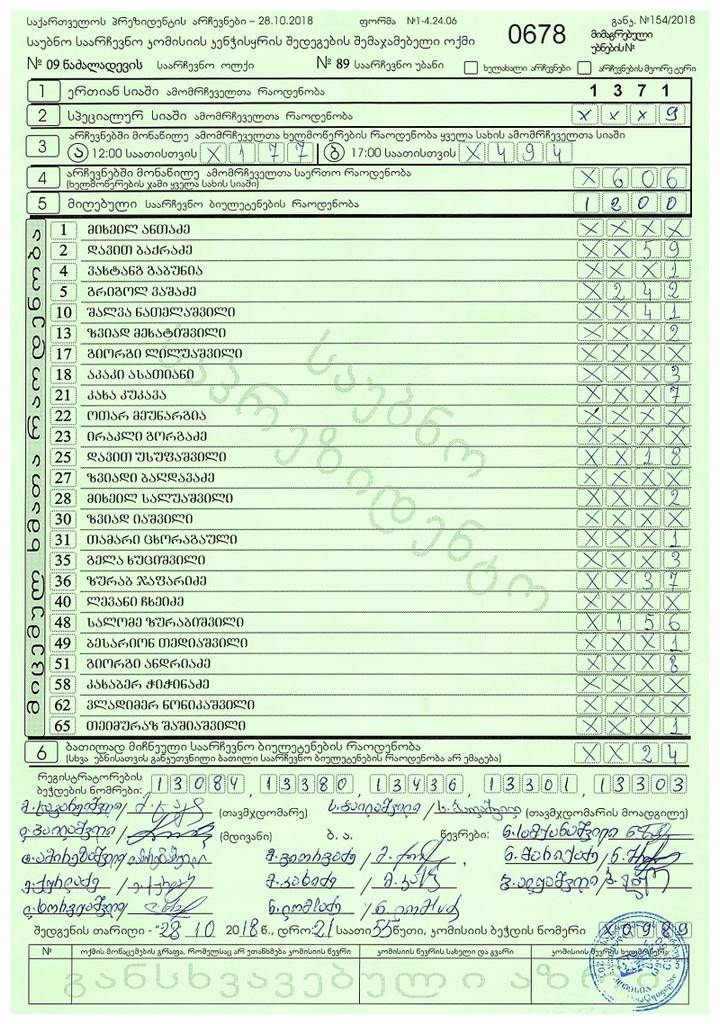 საქართველოს პრეზიდენტის არჩევნები – 28.10.2018 ფორმა №1-4.24.06 განკ. №154/2018
საუბნო საარჩევნო კომისიის კენჭისყრის შედეგების შემაჯამებელი ოქმი 0678 მიმაგრებული უბნების№
№ 09 ნაძალადევის საარჩევნო ოლქი № 89 საარჩევნო უბანი ხელახალი არჩევნები არჩევნების მეორე ტური
1 ერთიან სიაში ამომრჩეველთა რაოდენობა 1 3 7 1
2 სპეციალურ სიაში ამომრჩეველთა რაოდენობა X X X 9
3 არჩევნებში მონაწილე ამომრჩეველთა ხელმოწერების რაოდენობა ყველა სახის ამომრჩეველთა სიაში
ა 12:00 საათისთვის X 1 7 7 ბ 17:00 საათისთვის X 4 9 4
4 არჩევნებში მონაწილე ამომრჩეველთა საერთო რაოდენობა X 6 0 6
(ხელმოწერების ჯამი ყველა სახის სიაში)
5 მიღებული საარჩევნო ბიულეტენების რაოდენობა 1 2 0 0
მიცემულ ხმათა რაოდენობა
1 მიხეილ ანთაძე X X X X
2 დავით ბაქრაძე X X 5 9
4 ვახტანგ გაბუნია X X X 1
5 გრიგოლ ვაშაძე X 2 4 2
10 შალვა ნათელაშვილი X X 4 1
13 ზვიად მეხატიშვილი X X X 2
17 გიორგი ლილუაშვილი X X X X
18 აკაკი ასათიანი X X X 3
21 კახა კუკავა X X X 7
22 ოთარ მეუნარგია X X X X
23 ირაკლი გორგაძე X X X X
25 დავით უსუფაშვილი X X 1 8
27 ზვიადი ბაღდავაძე X X X X
28 მიხეილ სალუაშვილი X X X 2
30 ზვიად იაშვილი X X X X
31 თამარი ცხორაგაული X X X 1
35 გელა ხუციშვილი X X X 3
36 ზურაბ ჯაფარიძე X X 3 7
40 ლევანი ჩხეიძე X X X X
48 სალომე ზურაბიშვილი X 1 5 6
49 ბესარიონ თედიაშვილი X X X 1
51 გიორგი ანდრიაძე X X X 8
58 კახაბერ ჭიჭინაძე X X X X
62 ვლადიმერ ნონიკაშვილი X X X X
65 თეიმურაზ შაშიაშვილი X X X 1
6 ბათილად მიჩნეული საარჩევნო ბიულეტენების რაოდენობა X X 2 4
(სხვა უბნისათვის განკუთვნილი ბათილი საარჩევნო ბიულეტენების რაოდენობა არ ემატება)
რეგისტრატორების ბეჭდების ნომრები: 13084, 13380, 13436, 13301, 13303
(თავმჯდომარე) (თავმჯდომარის მოადგილე)
(მდივანი) ბ. ა. წევრები:
შედგენის თარიღი - 28 10 2018 წ., დრო: 21 საათი 55 წუთი, კომისიის ბეჭდის ნომერი X0989
№ ოქმის მონაცემების გრაფა, რომელსაც არ ეთანხმება კომისიის წევრი კომისიის წევრის სახელი და გვარი კომისიის წევრის ხელმოწერა
განსხვავებული აზრი
საუბნო
საპრეზიდენტო